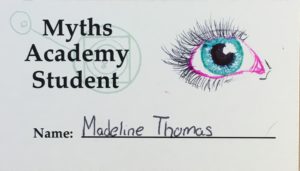 Myths
Academy
Student
Name: Madeline Thomas